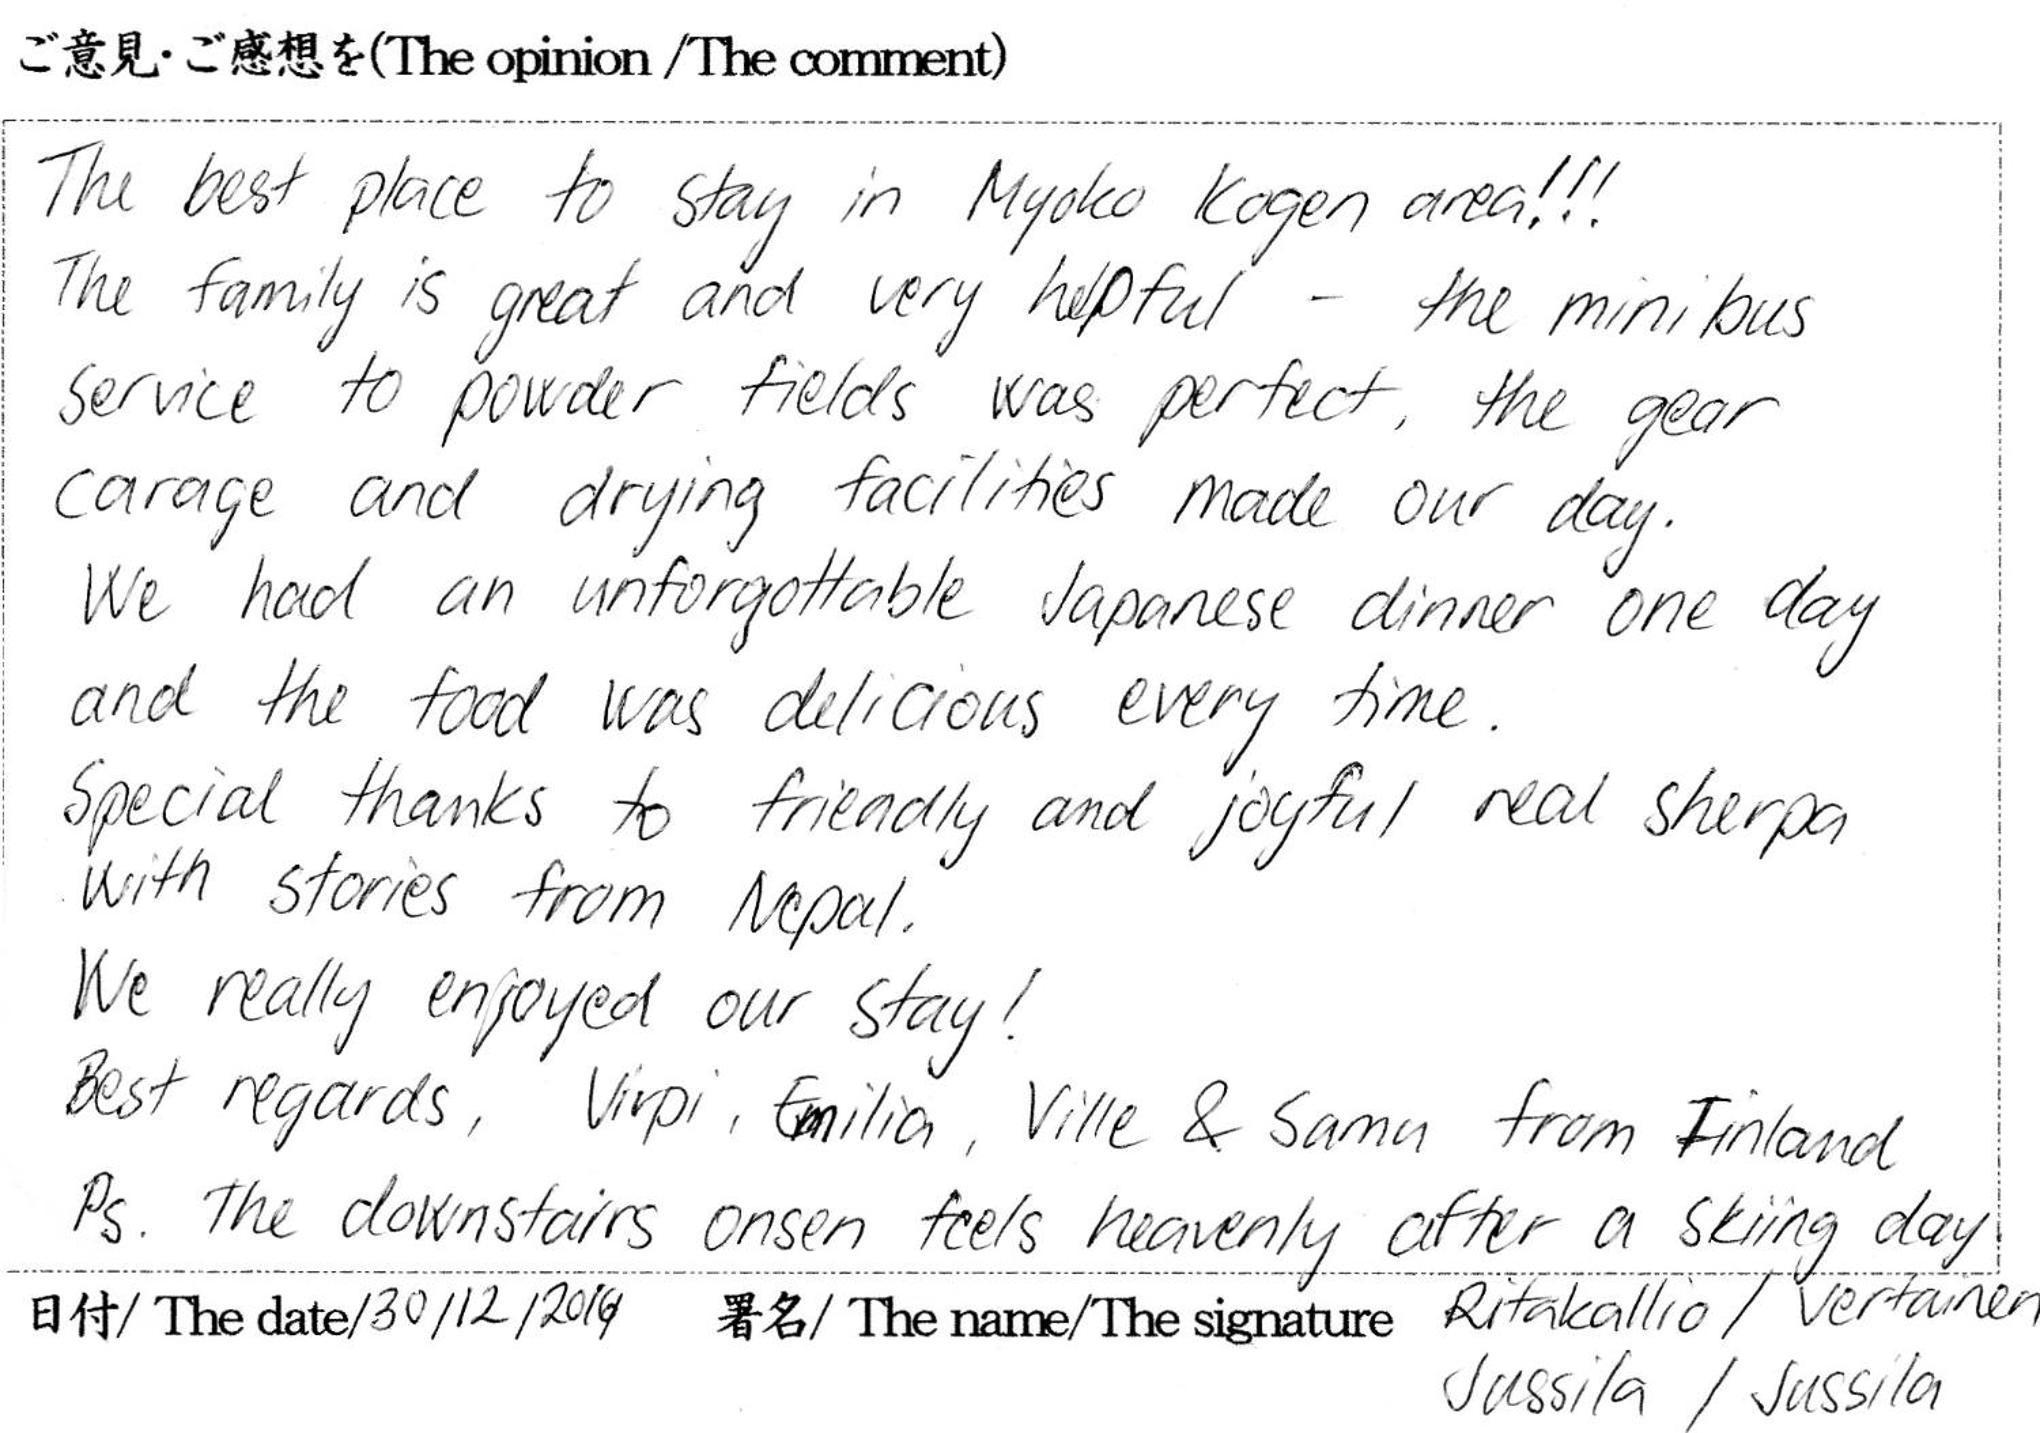 ご意見・ご感想を(The opinion /The comment)
The best place to stay in Myoko Kogen area!!!
The family is great and very helpful - the minibus
service to powder fields was perfect, the gear
carage and drying facilities made our day.
We had an unforgottable Japanese dinner one day
and the food was delicious every time.
Special thanks to friendly and joyful real sherpa
with stories from Nepal.
We really enjoyed our stay!
Best regards, Virpi, Emilia, Ville & Samu from Finland
Ps. The downstairs onsen feels heavenly after a skiing day.
日付/ The date/30/12/ 署名/ The name/The signature Ritakallio / Vertainen
Jussila / Jussila